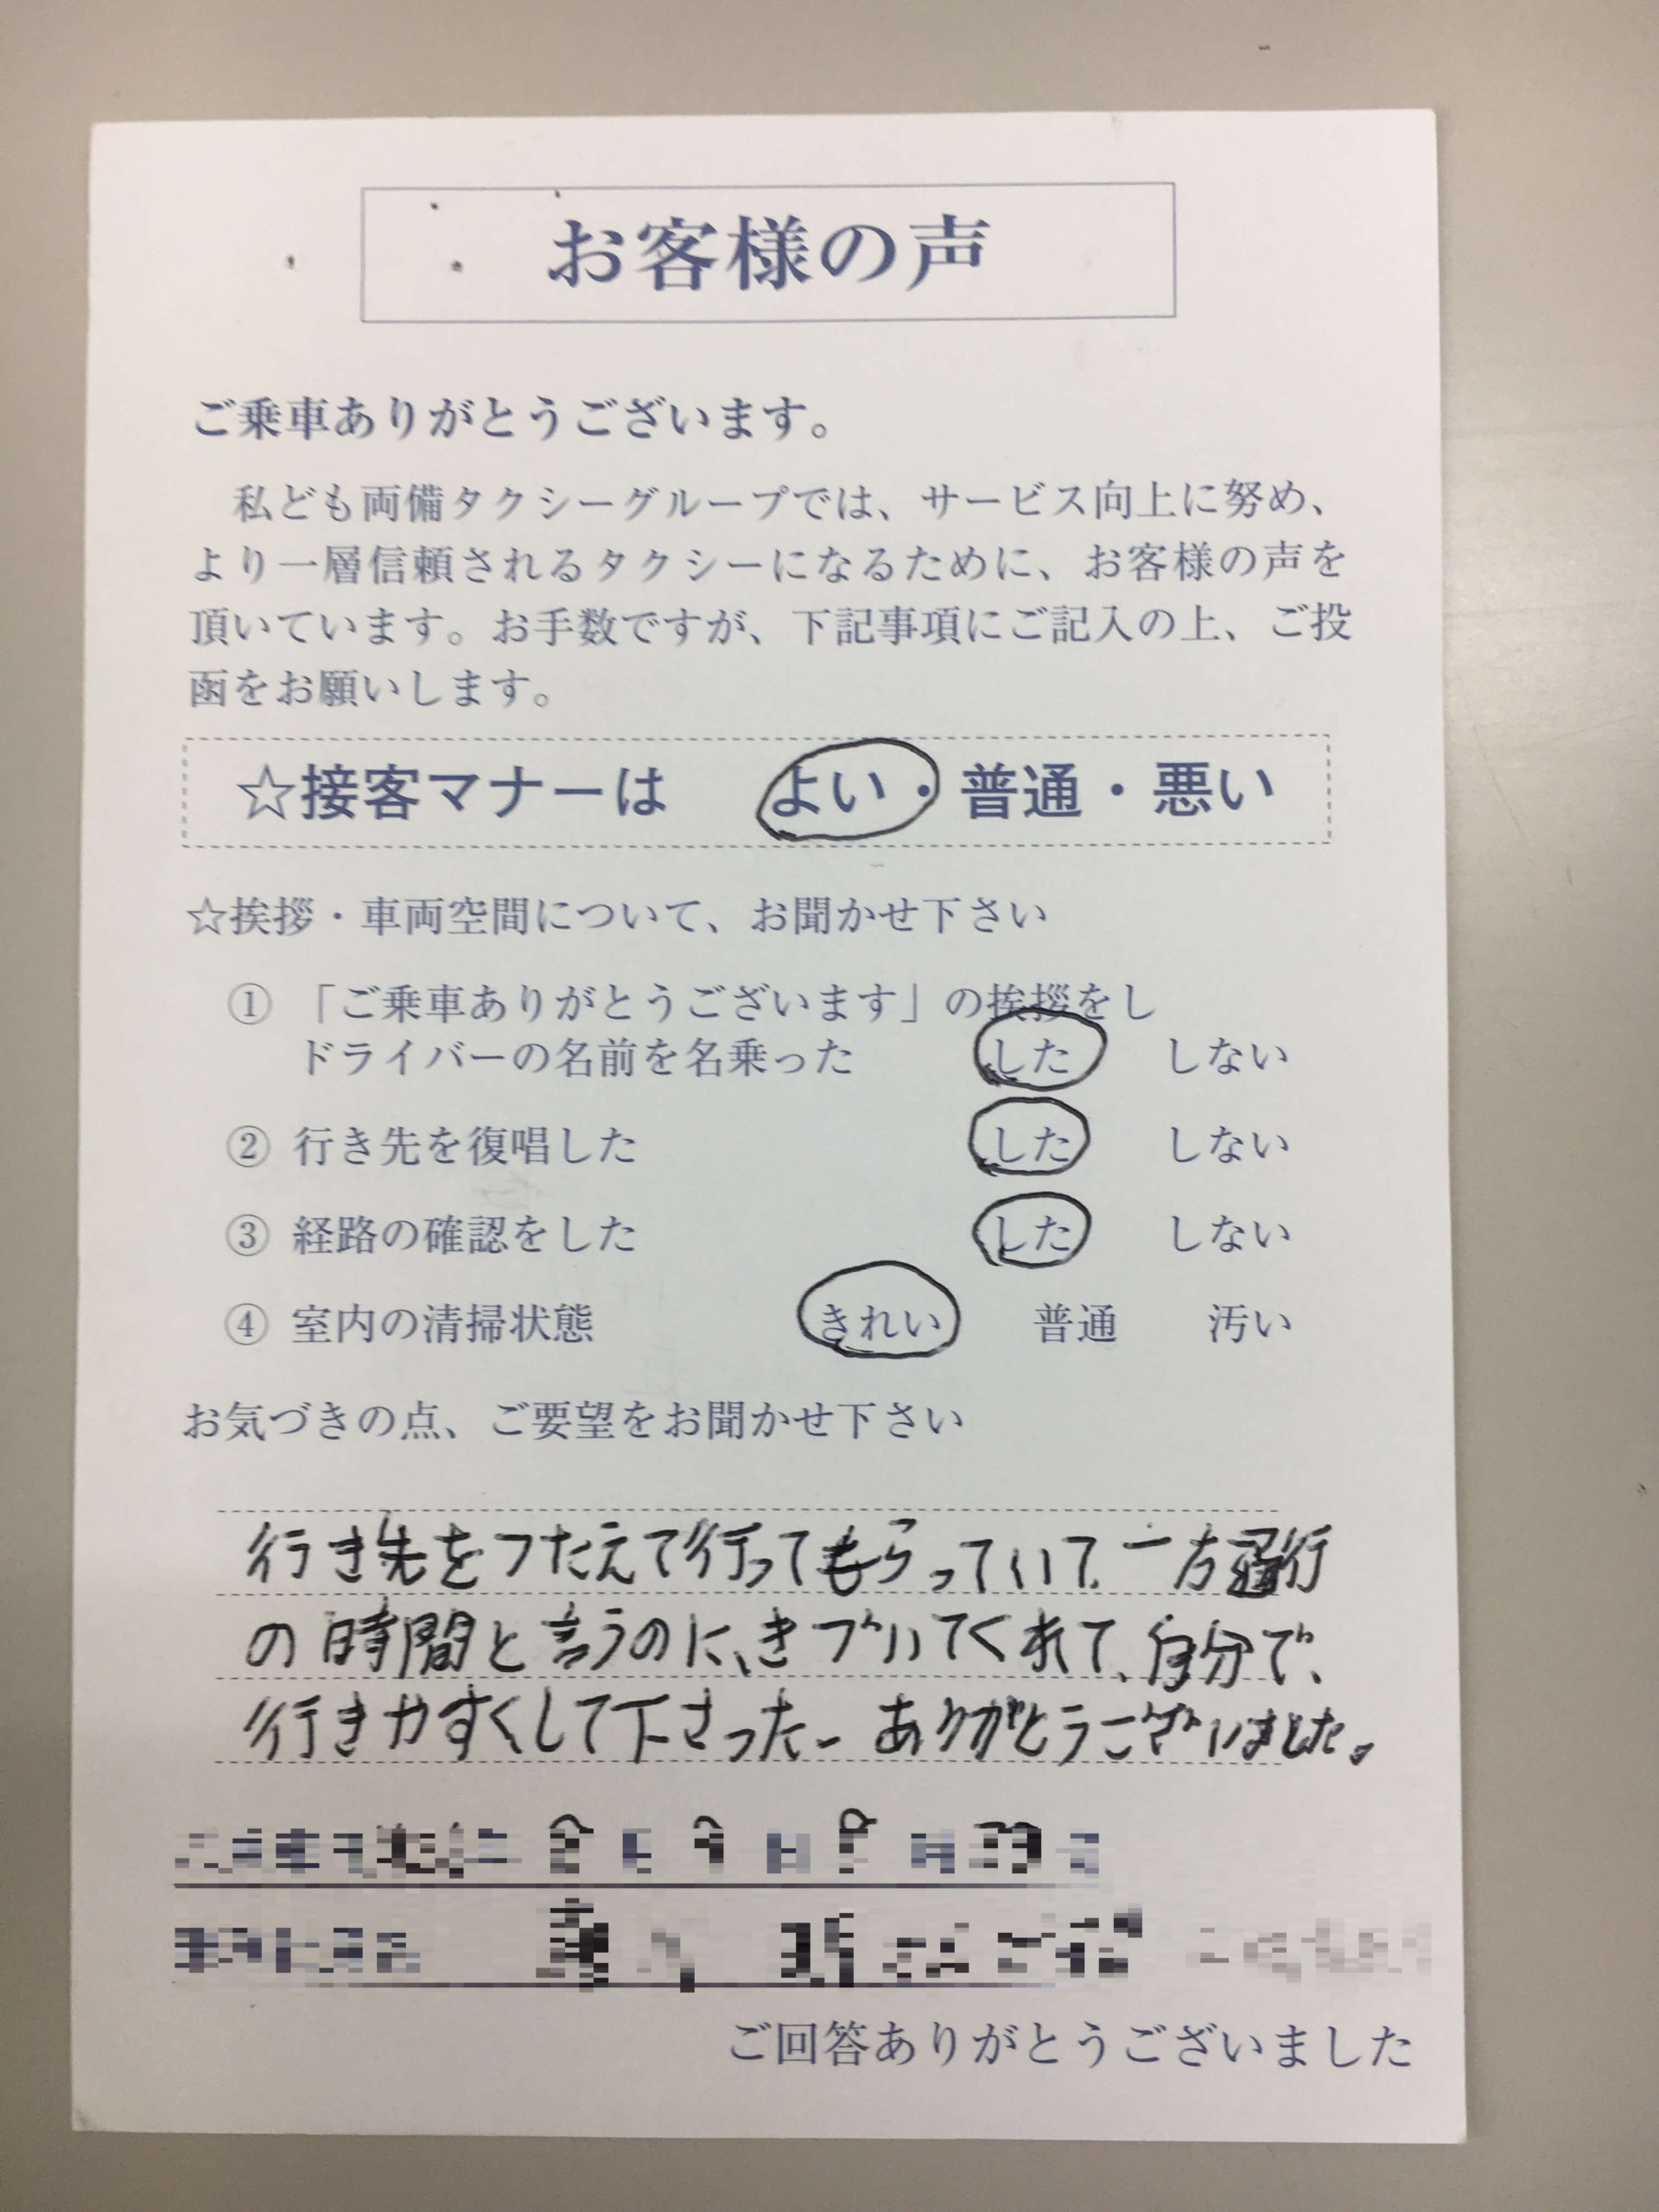 お客様の声
ご乗車ありがとうございます。
私ども両備タクシーグループでは、サービス向上に努め、
より一層信頼されるタクシーになるために、お客様の声を
頂いています。お手数ですが、下記事項にご記入の上、ご投
函をお願いします。
☆接客マナーは　よい・普通・悪い
☆挨拶・車両空間について、お聞かせ下さい
① 「ご乗車ありがとうございます」の挨拶をし
ドライバーの名前を名乗った　した　しない
② 行き先を復唱した　した　しない
③ 経路の確認をした　した　しない
④ 室内の清掃状態　きれい　普通　汚い
お気づきの点、ご要望をお聞かせ下さい
行き先をつたえて行ってもらっていて、一方通行
の時間と言うのに、きづいてくれて、自分で、
行きやすくして下さった。ありがとうございました。
ご回答ありがとうございました